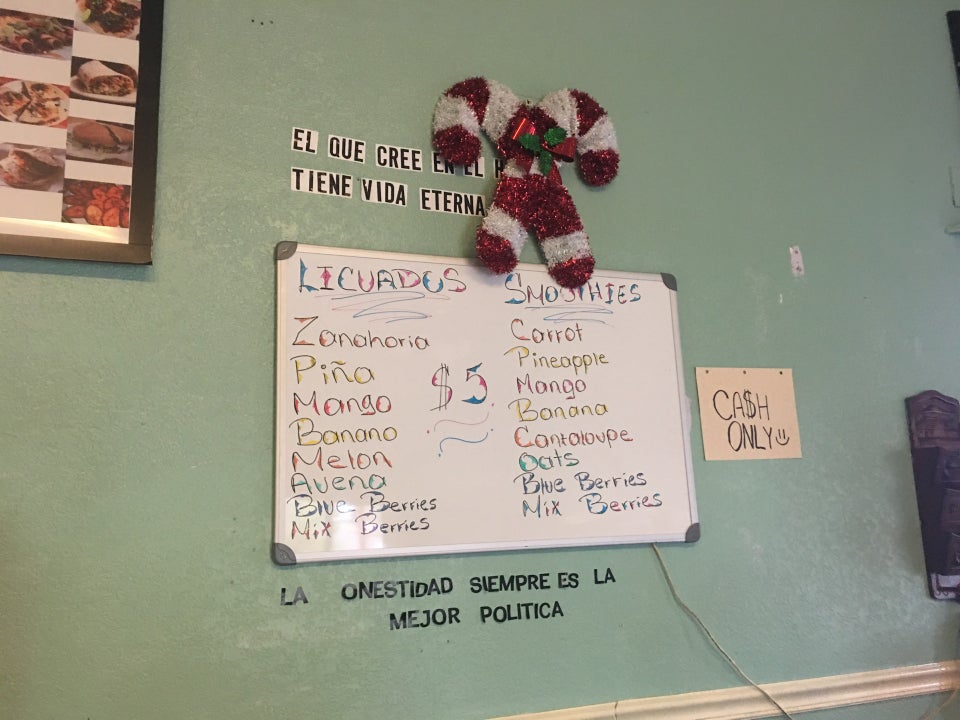 EL QUE CREE EN EL
TIENE VIDA ETERNA
LICUADOS
Zanahoria
Piña
Mango
Banano
Melon
Avena
Blue Berries
Mix Berries
$5
SMOOTHIES
Carrot
Pineapple
Mango
Banana
Cantaloupe
Oats
Blue Berries
Mix Berries
CA$H
ONLY
LA ONESTIDAD SIEMPRE ES LA
MEJOR POLITICA